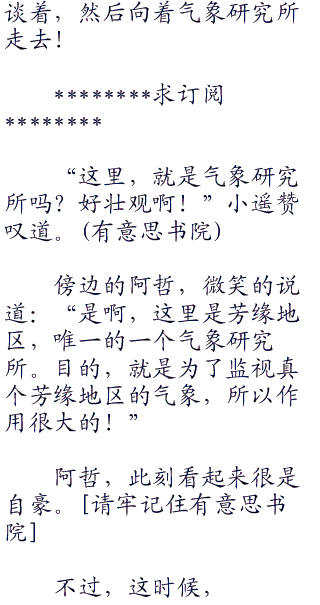 谈着，然后向着气象研究所
走去！
********求订阅
********
“这里，就是气象研究
所吗？好壮观啊！”小遥赞
叹道。(有意思书院)
傍边的阿哲，微笑的说
道：“是啊，这里是芳缘地
区，唯一的一个气象研究
所。目的，就是为了监视真
个芳缘地区的气象，所以作
用很大的！”
阿哲，此刻看起来很是
自豪。[请牢记住有意思书
院]
不过，这时候，